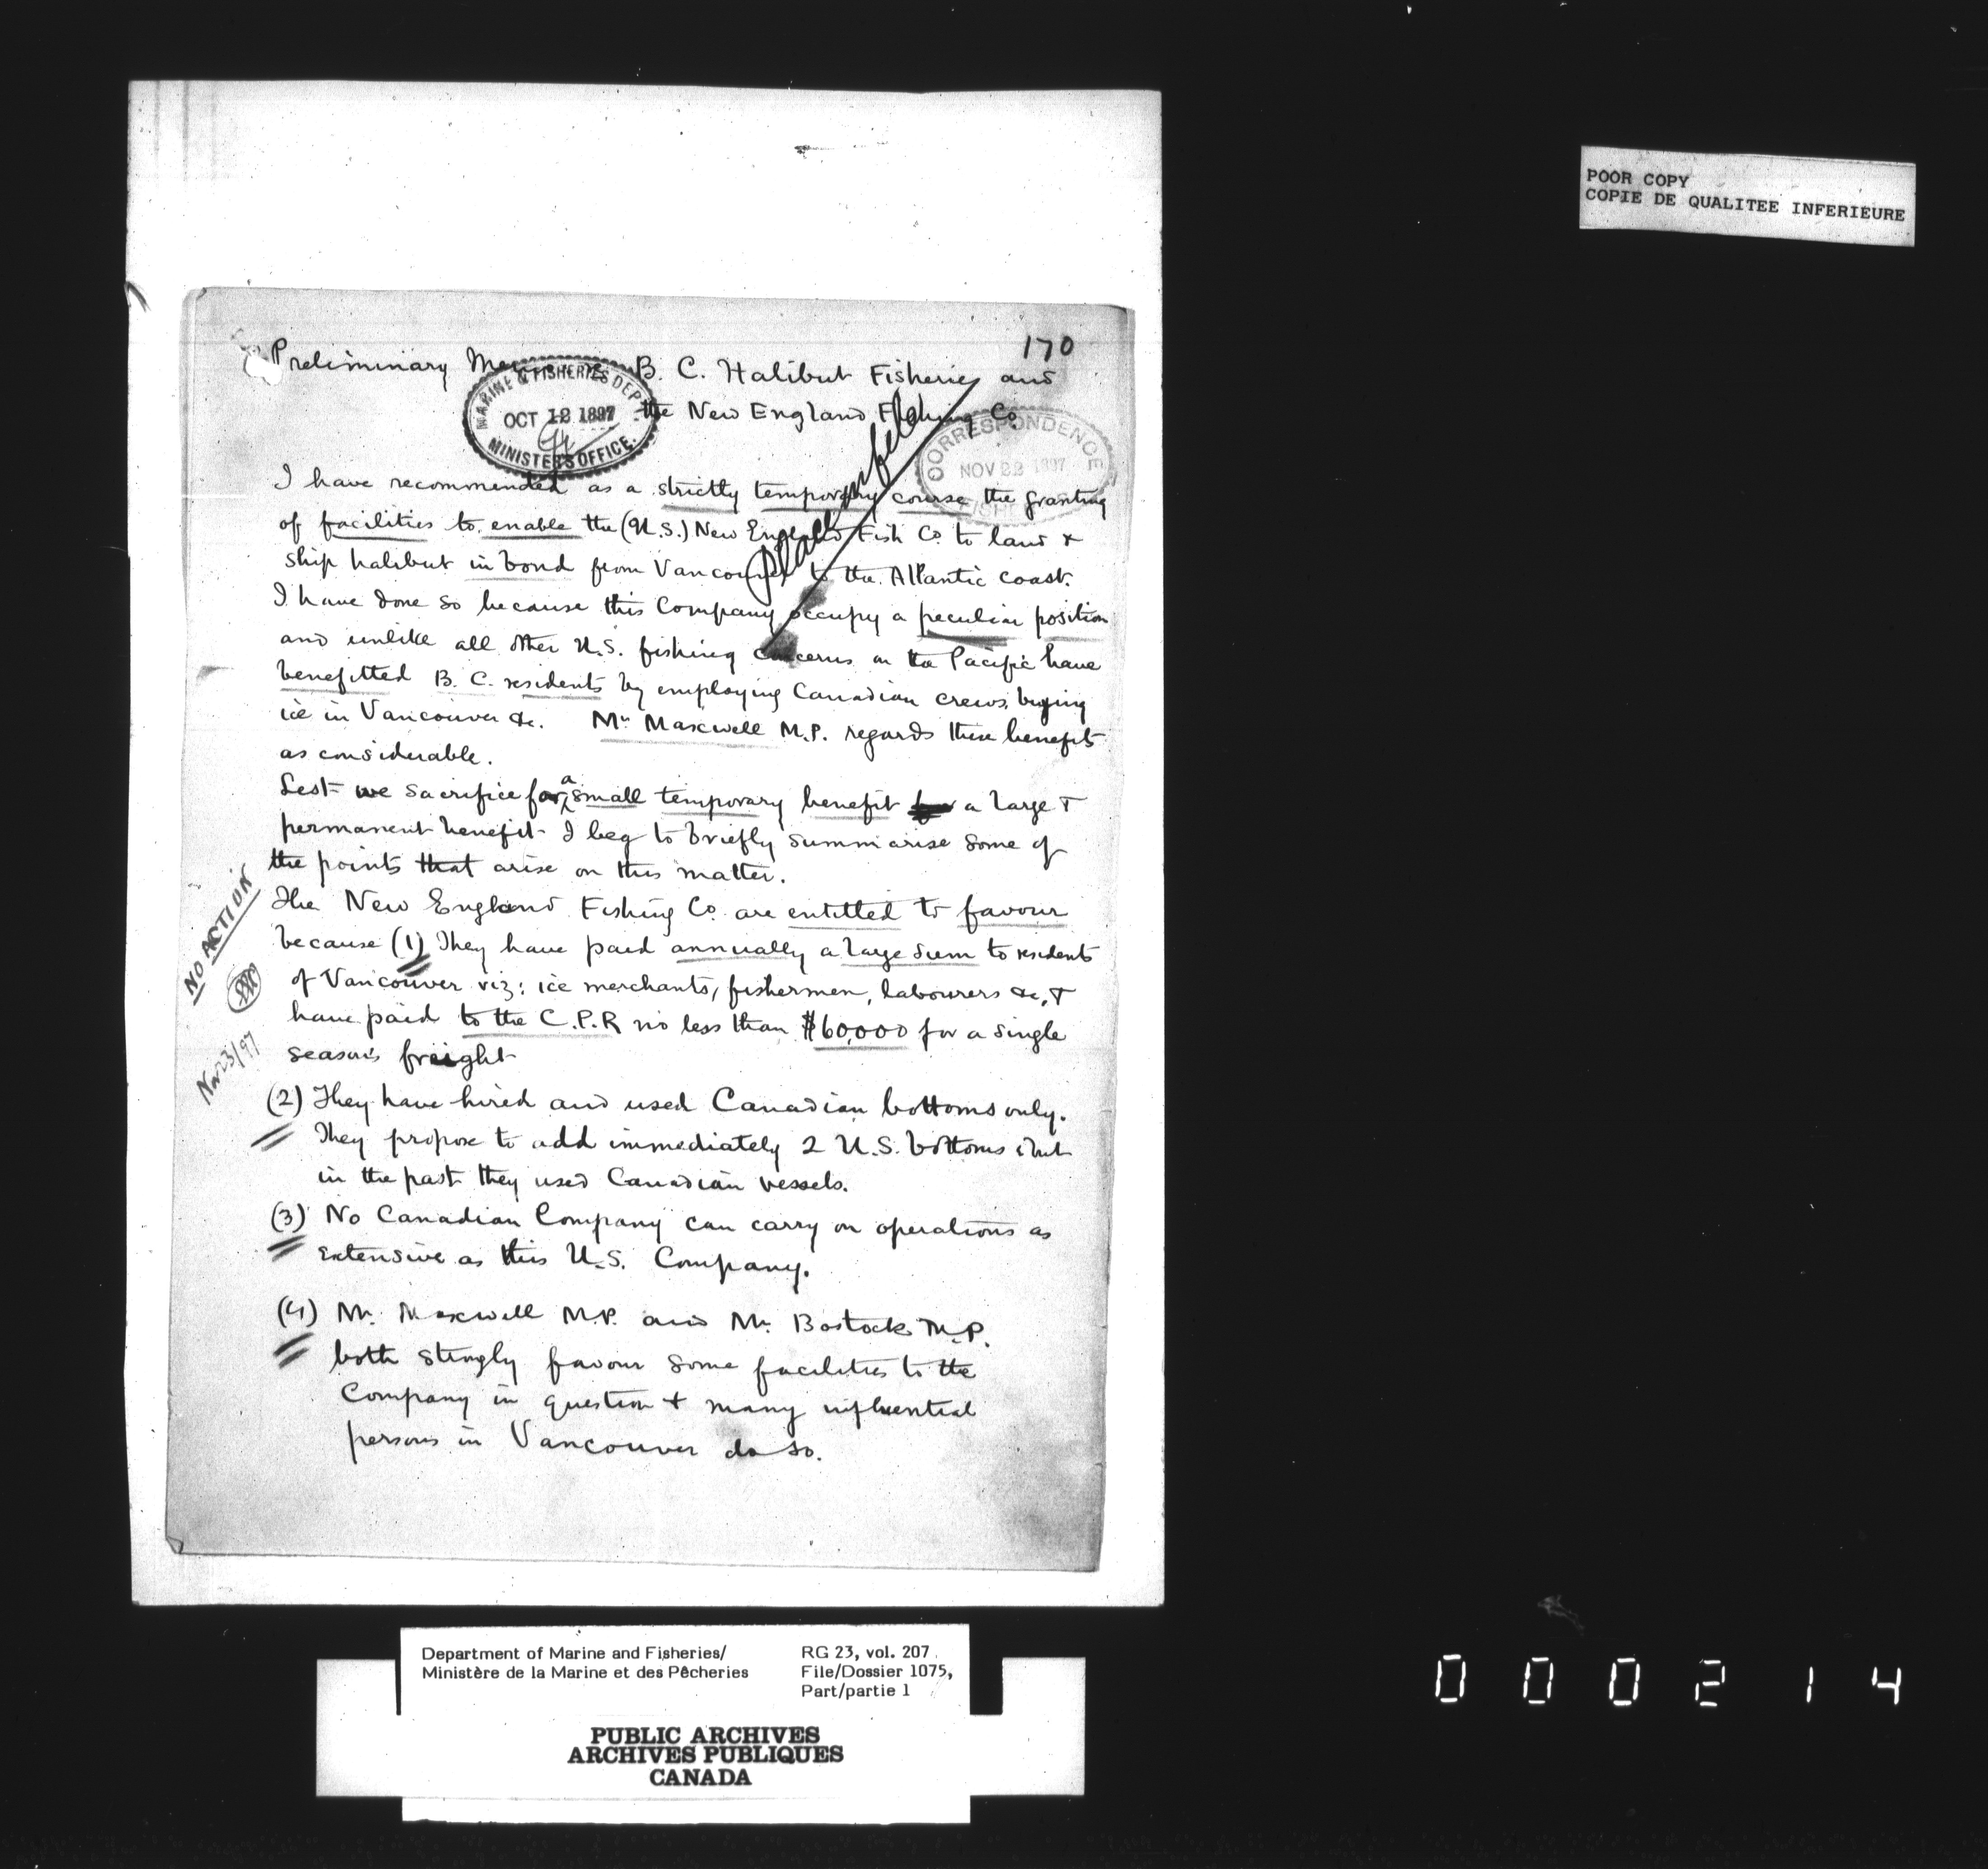 POOR COPY
COPIE DE QUALITEE INFERIEURE
170
Preliminary Memo re B. C. Halibut Fisheries and
the New England Fishing Co
MARINE & FISHERIES DEPT
OCT 12 1897
MINISTER'S OFFICE.
CORRESPONDENCE
NOV 23 1897
FISHERIES
Place on file
I have recommended as a strictly temporary course the granting
of facilities to enable the (U.S.) New England Fish Co. to land &
ship halibut in bond from Vancouver to the Atlantic coast.
I have done so because this Company occupy a peculiar position
and unlike all other U.S. fishing concerns on the Pacific have
benefitted B. C. residents by employing Canadian crews, buying
ice in Vancouver &c. Mr Maxwell M.P. regards these benefits
as considerable.
Lest we sacrifice for a small temporary benefit a large &
permanent benefit I beg to briefly summarise some of
the points that arise on this matter.
The New England Fishing Co. are entitled to favour
because (1) They have paid annually a large sum to residents
of Vancouver viz: ice merchants, fishermen, labourers &c, &
have paid to the C.P.R no less than $60,000 for a single
season's freight
(2) They have hired and used Canadian bottoms only.
They propose to add immediately 2 U.S. bottoms but
in the past they used Canadian vessels.
(3) No Canadian Company can carry on operations as
extensive as this U.S. Company.
(4) Mr. Maxwell M.P. and Mr. Bostock M.P.
both stongly favour some facilities to the
Company in question & many influential
persons in Vancouver do so.
NO ACTION
Nov 23/97
Department of Marine and Fisheries/
Ministère de la Marine et des Pêcheries
RG 23, vol. 207
File/Dossier 1075,
Part/partie 1
PUBLIC ARCHIVES
ARCHIVES PUBLIQUES
CANADA
000214